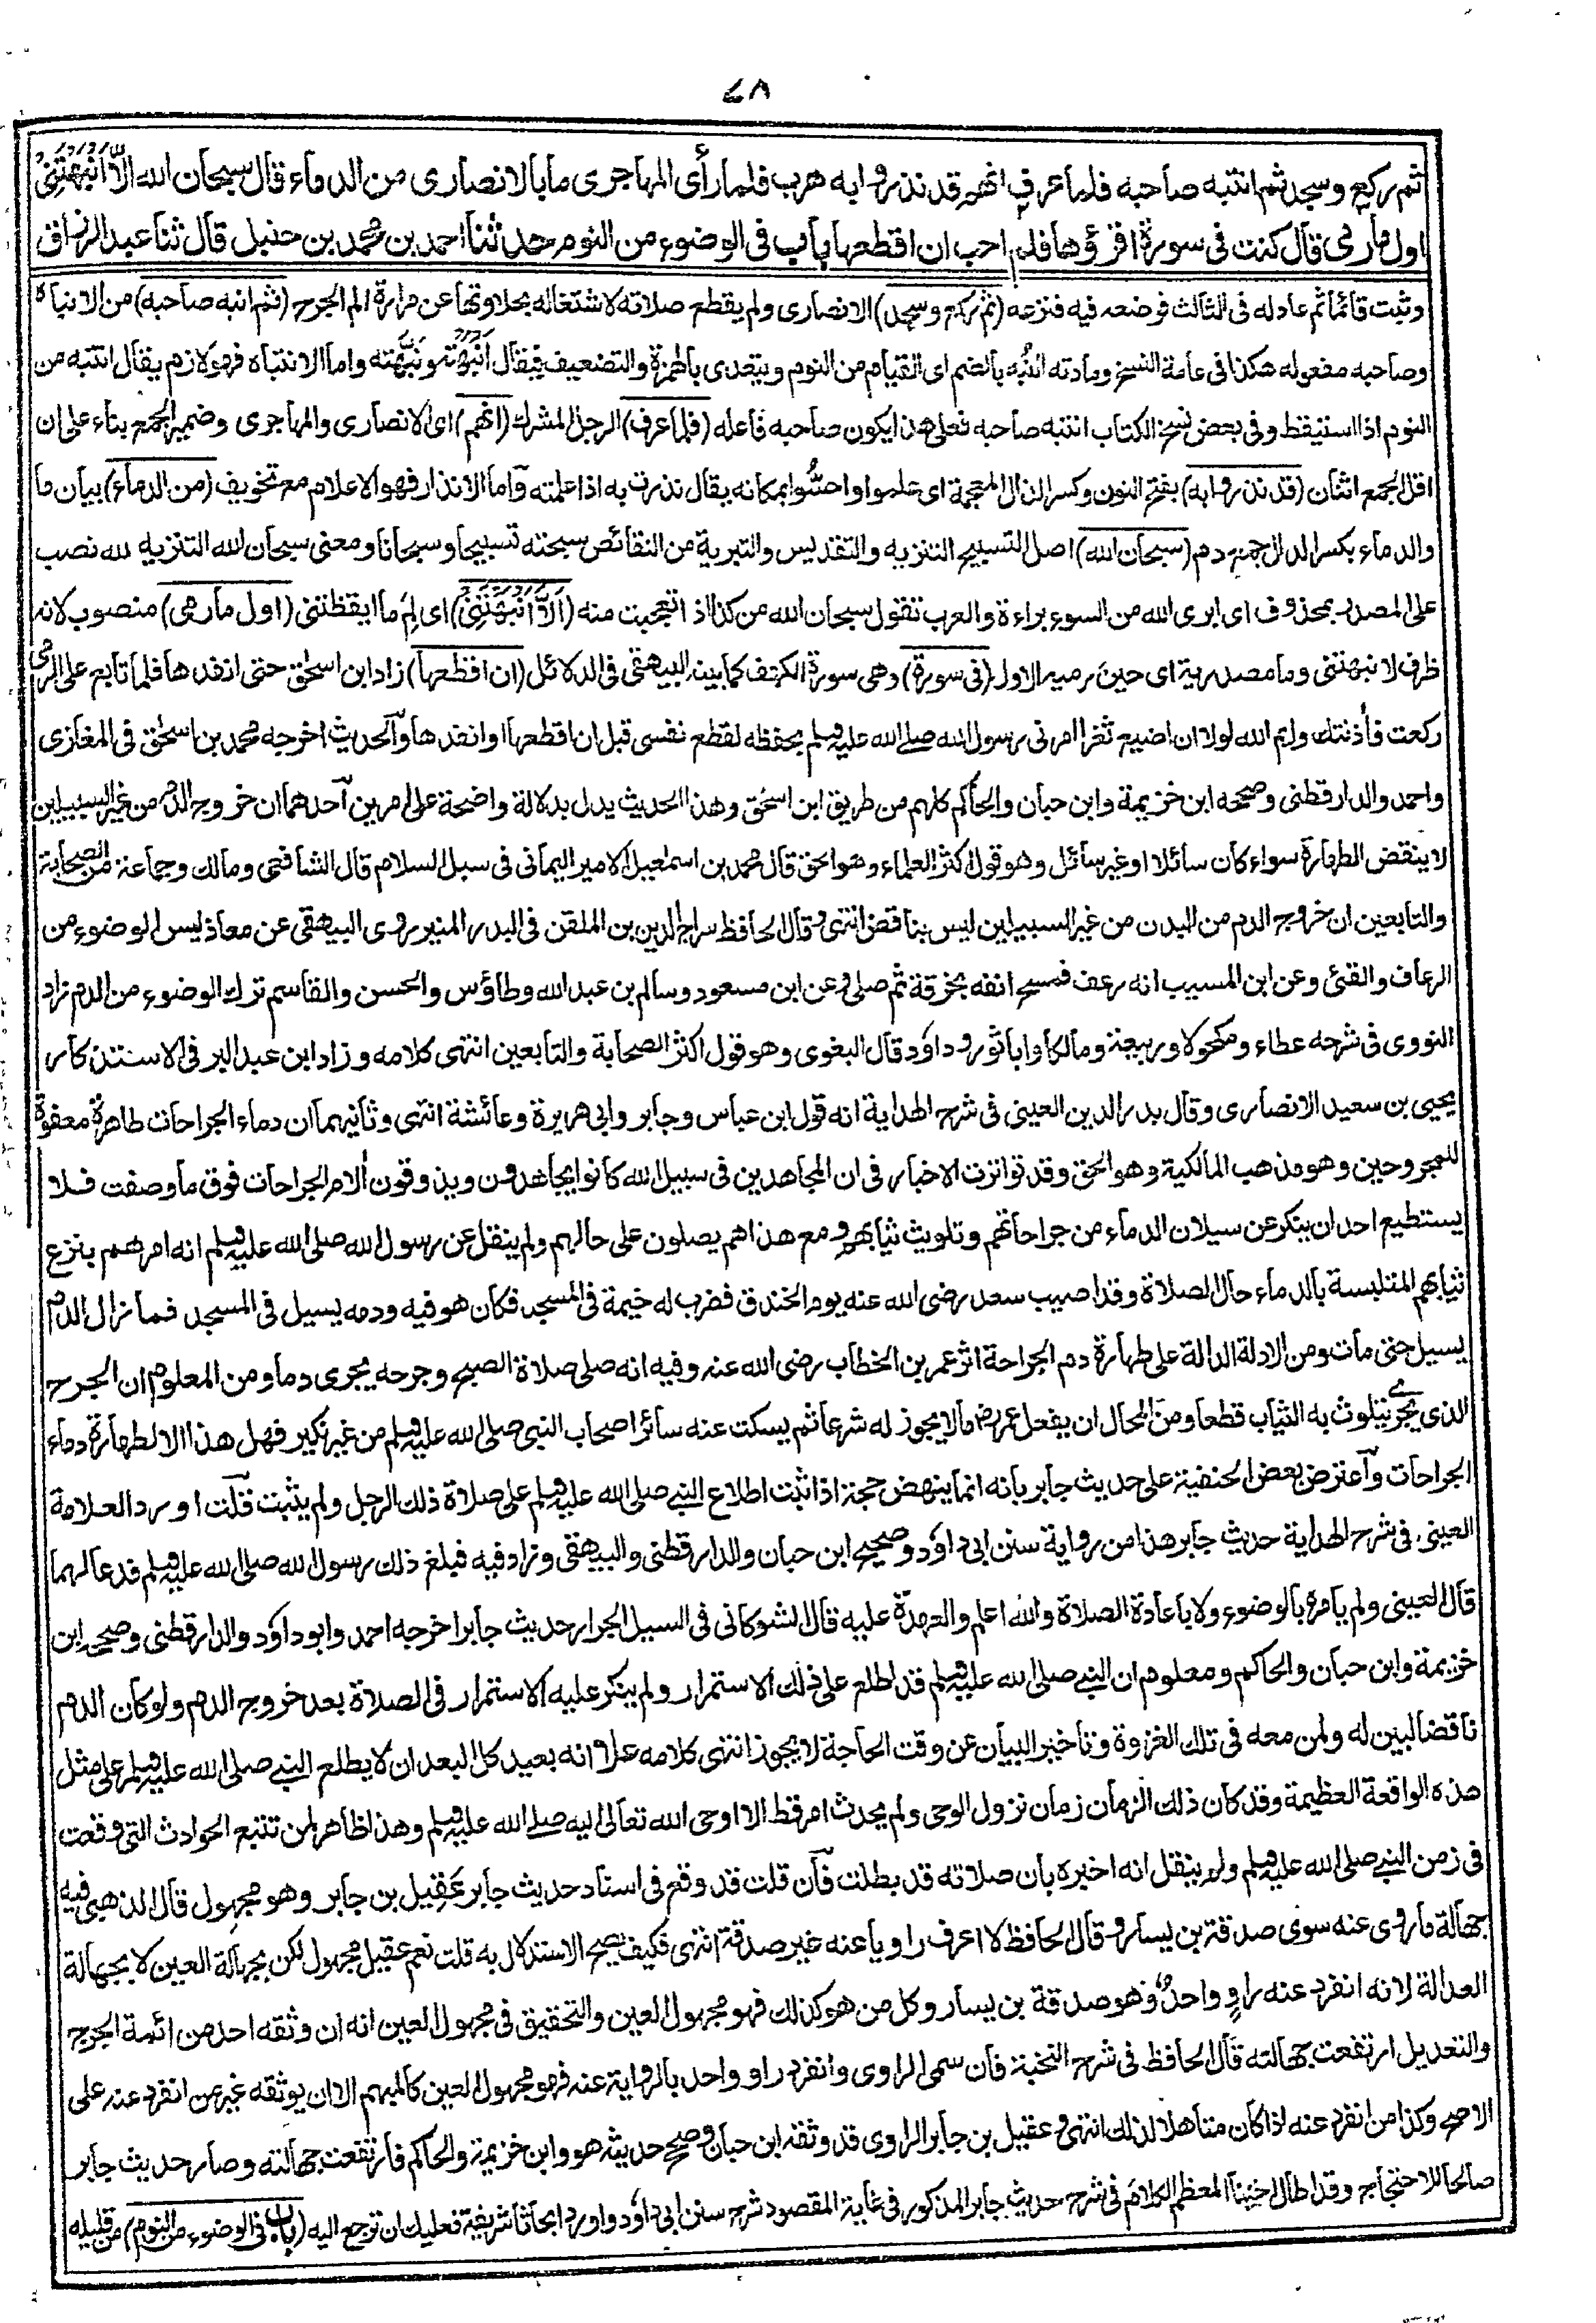 ٧٨
ثم ركع وسجد ثم انتبه صاحبه فلما عرف انهم قد نذروا به هرب فلما رأى المهاجرى ما بالانصارى من الدماء قال سبحان الله الّا اَنْبَهْتَنِيْ
اول ما رمى قال كنت فى سورة اقرؤها فلم احب ان اقطعها باب فى الوضوء من النوم حدثنا احمد بن محمد بن حنبل قال ثنا عبد الرزاق
وثبت قائما ثم عادله فى الثالث فوضعه فيه فنزعه (ثم ركع وسجد) الانصارى ولم يقطع صلاته لاشتغاله بحلاوتها عن مرارة الم الجرح (ثم انبه صاحبه) من الانباه
وصاحبه مفعوله هكذا فى عامة النسخ ومادته النُبه بالضم اى القيام من النوم ويتعدى بالهمزة والتضعيف فيقال اَنْبَهْتُه ونَبَّهته واما الانتباه فهو لازم يقال انتبه من
النوم اذا استيقظ وفى بعض نسخ الكتاب انتبه صاحبه فعلى هذا يكون صاحبه فاعله (فلما عرف) الرجل المشرك (انهم) اى الانصارى والمهاجرى وضمير الجمع بناء على ان
اقل الجمع اثنان (قد نذروا به) بفتح النون وكسر الذال المعجمة اى علموا واحسُّوا بمكانه يقال نذرت به اذا علمته واما الانذار فهو الاعلام مع تخويف (من الدماء) بيان ما
والدماء بكسر الدال جمع دم (سبحان الله) اصل التسبيح التنزيه والتقديس والتبرية من النقائص سبحته تسبيحا وسبحانا ومعنى سبحان الله التنزيه لله نصب
على المصدر بمحذوف اى ابرئ الله من السوء براءة والعرب تقول سبحان الله من كذا اذا تعجبت منه (اَلَّا اَنْبَهْتَنِيْ) اى لِمَ ما ايقظتنى (اول ما رمى) منصوب لانه
ظرف لانبهتنى وما مصدرية اى حين رميه الاول (فى سورة) وهى سورة الكهف كما بينه البيهقى فى الدلائل (ان اقطعها) زاد ابن اسحٰق حتى انفدها فلما تابع على الرمى
ركعت فأذنتك وايم الله لولا ان اضيع ثغرا امرنى رسول الله صلى الله عليه وسلم بحفظه لقطع نفسى قبل ان اقطعها او انفدها والحديث اخرجه محمد بن اسحٰق فى المغازى
واحمد والدارقطنى وصححه ابن خزيمة وابن حبان والحاكم كلهم من طريق ابن اسحٰق وهذا الحديث يدل بدلالة واضحة على امرين احدهما ان خروج الدم من غير السبيلين
لا ينقض الطهارة سواء كان سائلا او غير سائل وهو قول اكثر العلماء وهو الحق قال محمد بن اسمٰعيل الامير اليمانى فى سبل السلام قال الشافعى ومالك وجماعة من الصحابة
والتابعين ان خروج الدم من البدن من غير السبيلين ليس بناقض انتهى وقال الحافظ سراج الدين بن الملقن فى البدر المنير روى البيهقى عن معاذ ليس الوضوء من
الرعاف والقئ وعن ابن المسيب انه رعف فمسح انفه بخرقة ثم صلى وعن ابن مسعود وسالم بن عبد الله وطاؤس والحسن والقاسم ترك الوضوء من الدم زاد
النووى فى شرحه عطاء ومكحولا وربيعة ومالكا وابا ثور وداؤد قال البغوى وهو قول اكثر الصحابة والتابعين انتهى كلامه وزاد ابن عبد البر فى الاستذكار
يحيى بن سعيد الانصارى وقال بدر الدين العينى فى شرح الهداية انه قول ابن عباس وجابر وابى هريرة وعائشة انتهى وثانيهما ان دماء الجراحات طاهرة معفوة
للمجروحين وهو مذهب المالكية وهو الحق وقد تواترت الاخبار فى ان المجاهدين فى سبيل الله كانوا يجاهدون ويذوقون ألام الجراحات فوق ما وصفت فلا
يستطيع احد ان ينكر عن سيلان الدماء من جراحاتهم وتلويث ثيابهم ومع هذا هم يصلون على حالهم ولم ينقل عن رسول الله صلى الله عليه وسلم انه امرهم بنزع
ثيابهم المتلبسة بالدماء حال الصلاة وقد اصيب سعد رضى الله عنه يوم الخندق فضرب له خيمة فى المسجد فكان هو فيه ودمه يسيل فى المسجد فما زال الدم
يسيل حتى مات ومن الادلة الدالة على طهارة دم الجراحة اثر عمر بن الخطاب رضى الله عنه وفيه انه صلى صلاة الصبح وجرحه يجرى دما ومن المعلوم ان الجرح
الذى يجرى يتلوث به الثياب قطعا ومن المحال ان يفعل عمر رض ما لا يجوز له شرعا ثم يسكت عنه سائر اصحاب النبى صلى الله عليه وسلم من غير نكير فهل هذا الا لطهارة دماء
الجراحات واعترض بعض الحنفية على حديث جابر بانه انما ينهض حجة اذا ثبت اطلاع النبى صلى الله عليه وسلم على صلاة ذلك الرجل ولم يثبت قلت اورد العلامة
العينى فى شرح الهداية حديث جابر هذا من رواية سنن ابى داؤد وصحيح ابن حبان والدارقطنى والبيهقى وزاد فيه فبلغ ذلك رسول الله صلى الله عليه وسلم فدعا لهما
قال العينى ولم يأمره بالوضوء ولا باعادة الصلاة والله اعلم والعهدة عليه قال الشوكانى فى السيل الجرار حديث جابر اخرجه احمد وابو داؤد والدارقطنى وصححه ابن
خزيمة وابن حبان والحاكم ومعلوم ان النبى صلى الله عليه وسلم قد اطلع على ذلك الاستمرار ولم ينكر عليه الاستمرار فى الصلاة بعد خروج الدم ولو كان الدم
ناقضا لبين له ولمن معه فى تلك الغزوة وتاخير البيان عن وقت الحاجة لا يجوز انتهى كلامه على انه بعيد كل البعد ان لا يطلع النبى صلى الله عليه وسلم على مثل
هذه الواقعة العظيمة وقد كان ذلك الزمان زمان نزول الوحى ولم يحدث امر قط الا اوحى الله تعالى اليه صلى الله عليه وسلم وهذا ظاهر لمن تتبع الحوادث التى وقعت
فى زمن النبى صلى الله عليه وسلم ولم ينقل انه اخبره بان صلاته قد بطلت فان قلت قد وقع فى اسناد حديث جابر عَقِيل بن جابر وهو مجهول قال الذهبى فيه
جهالة ما روى عنه سوى صدقة بن يسار وقال الحافظ لا اعرف راويا عنه غير صدقة انتهى فكيف يصح الاستدلال به قلت نعم عقيل مجهول لكن بجهالة العين لا بجهالة
العدالة لانه انفرد عنه راوٍ واحدٌ وهو صدقة بن يسار وكل من هو كذلك فهو مجهول العين والتحقيق فى مجهول العين انه ان وثقه احد من ائمة الجرح
والتعديل ارتفعت جهالته قال الحافظ فى شرح النخبة فان سمى الراوى وانفرد راو واحد بالرواية عنه فهو مجهول العين كالمبهم الا ان يوثقه غير من انفرد عنه على
الاصح وكذا من انفرد عنه اذا كان متأهلا لذلك انتهى وعقيل بن جابر الراوى قد وثقه ابن حبان وصحح حديثه هو وابن خزيمة والحاكم فارتفعت جهالته وصار حديث جابر
صالحا للاحتجاج وقد اطال اخينا المعظم الكلام فى شرح حديث جابر المذكور فى غاية المقصود شرح سنن ابى داؤد واورد ابحاثا شريفة فعليك ان ترجع اليه (باب فى الوضوء من النوم) من قليله